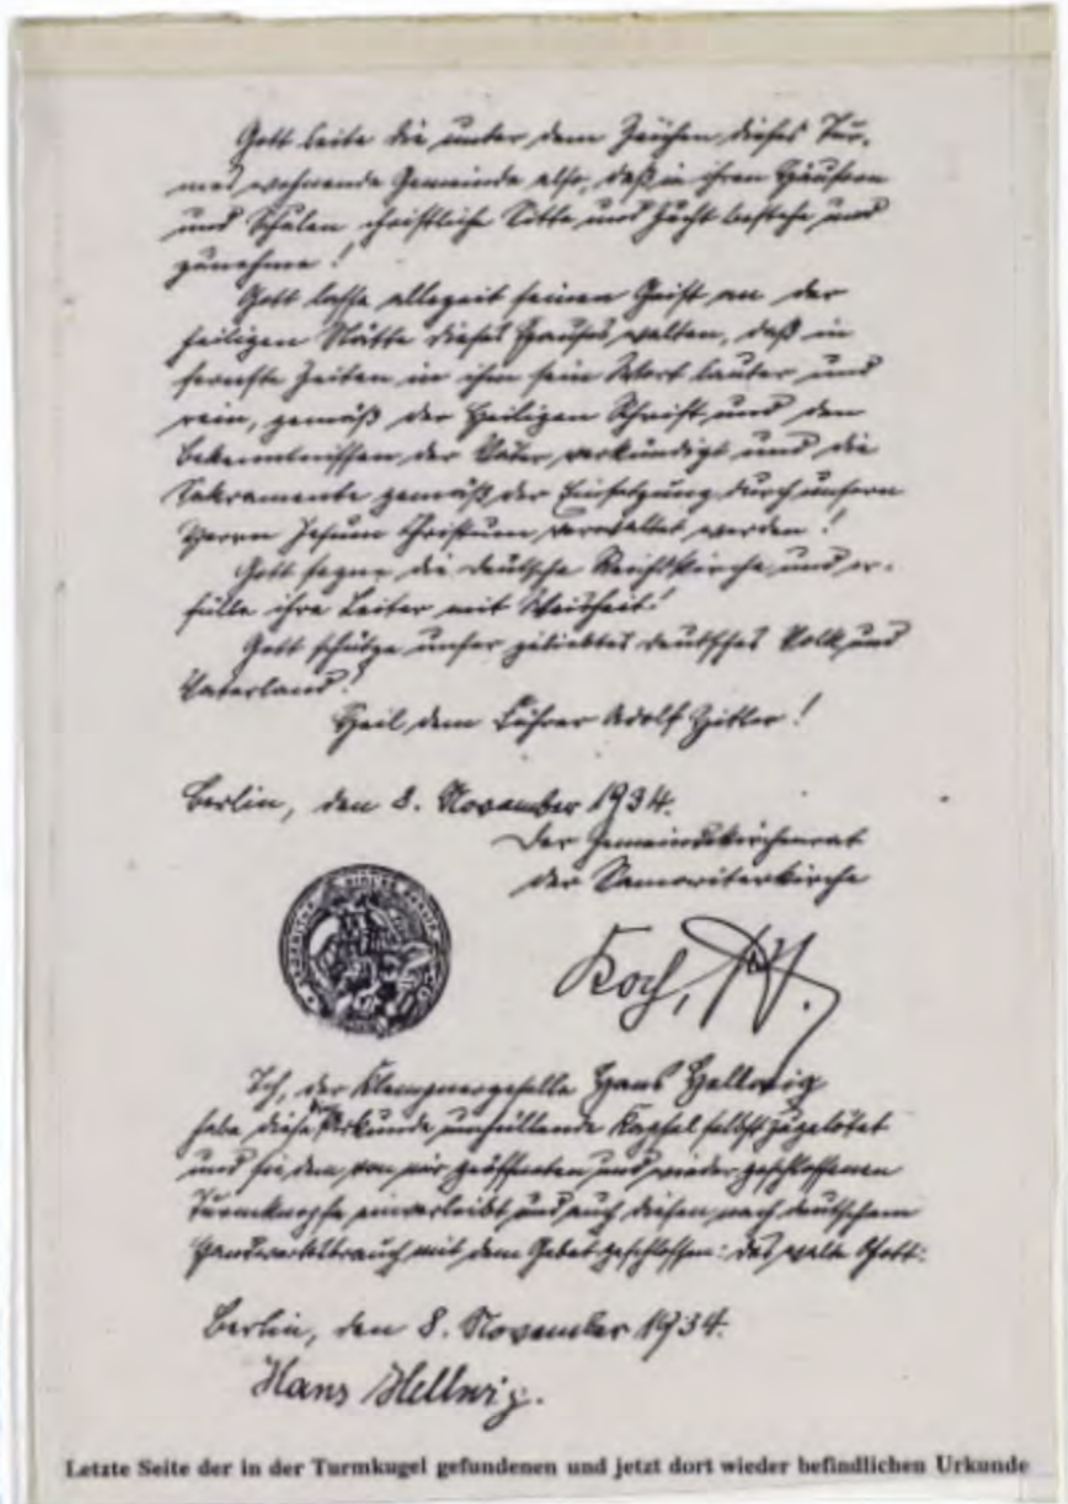 Gott leite die unter dem Zeichen dieses Tur-
mes wohnende Gemeinde also, daß in ihren Häusern
und Schulen christliche Sitte und Zucht bestehe und
zunehme!
Gott lasse allezeit seinen Geist an der
heiligen Stätte dieses Hauses walten, daß in
fernste Zeiten in ihm sein Wort lauter und
rein, gemäß der Heiligen Schrift und den
Bekenntnissen der Väter verkündigt und die
Sakramente gemäß der Einsetzung durch unsern
Herrn Jesum Christum verwaltet werden!
Gott segne die deutsche Reichskirche und er-
fülle ihre Leiter mit Weisheit!
Gott schütze unser geliebtes deutsches Volk und
Vaterland!
Heil dem Führer Adolf Hitler!
Berlin, den 8. November 1934.
Der Gemeindekirchenrat
der Samariterkirche
Koch, Pf.
Ich, der Klempnergeselle Hans Hellwig
habe diese Urkunde umhüllende Kapsel selbst zugelötet
und sie dem von mir geöffneten und wieder geschlossenen
Turmknopfe einverleibt und auch diesen nach deutschem
Handwerksbrauch mit dem Gebet geschlossen: das walte Gott!
Berlin, den 8. November 1934.
Hans Hellwig.
Letzte Seite der in der Turmkugel gefundenen und jetzt dort wieder befindlichen Urkunde